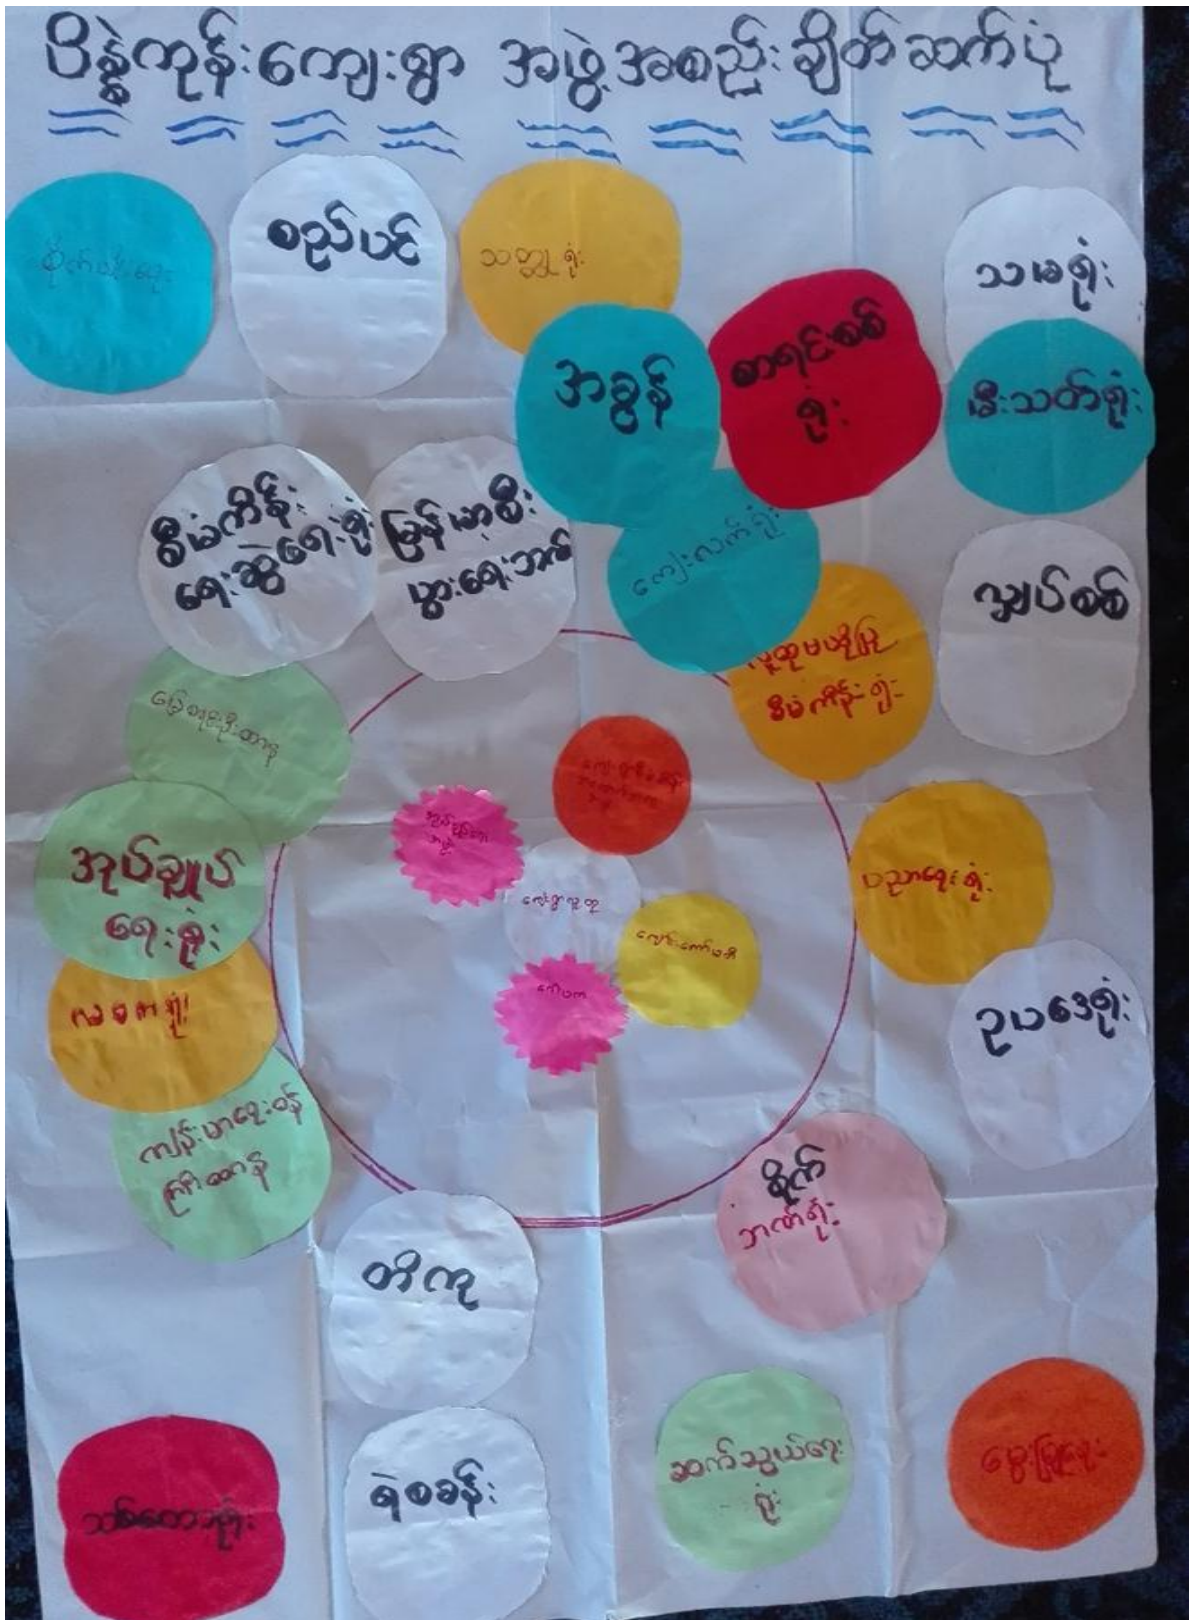 ပိန္နဲကုန်းကျေးရွာ အဖွဲ့အစည်းချိတ်ဆက်ပုံ
စိုက်ပျိုးရေး
စည်ပင်
သတ္တုရုံး
သမရုံး
အခွန်
စာရင်းစစ်
ရုံး
မီးသတ်ရုံး
စီမံကိန်း
ရေးဆွဲရေးရုံး
မြန်မာ့စီး
ပွားရေးဘဏ်
ကျေးလက်ရုံး
လျှပ်စစ်
လူထုဗဟိုပြု
စီမံကိန်းရုံး
မြေစာရင်းဦးစီးဌာန
အုပ်ချုပ်
ရေးရုံး
ကျေးရွာလူထု
ပညာရေးရုံး
ဥပဒေရုံး
ကျန်းမာရေးဝန်
ကြီးဌာန
စိုက်
ဘဏ်ရုံး
တိကု
ရဲစခန်း
ဆက်သွယ်ရေး
ရုံး
မွေးမြူရေး
သစ်တောရုံး